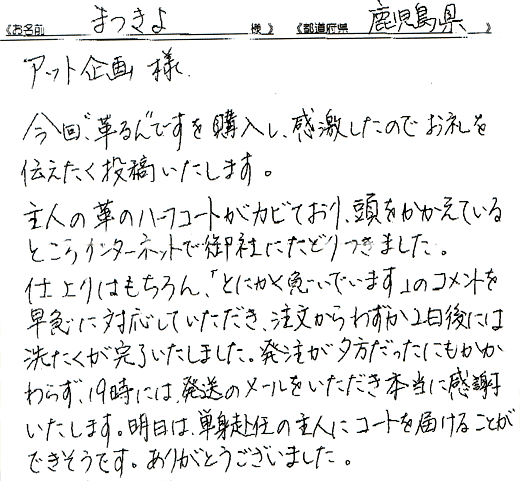 《お名前 まつきよ 様》《都道府県 鹿児島県 》
アット企画 様
今回、革るんですを購入し、感激したのでお礼を
伝えたく投稿いたします。
主人の革のハーフコートがカビており、頭をかかえている
ところインターネットで御社にたどりつきました。
仕上りはもちろん、「とにかく急いでいます」のコメントを
早急に対応していただき、注文からわずか2日後には
洗たくが完了いたしました。発注が夕方だったにもかか
わらず、19時には、発送のメールをいただき本当に感謝
いたします。明日は、単身赴任の主人にコートを届けることが
できそうです。ありがとうございました。